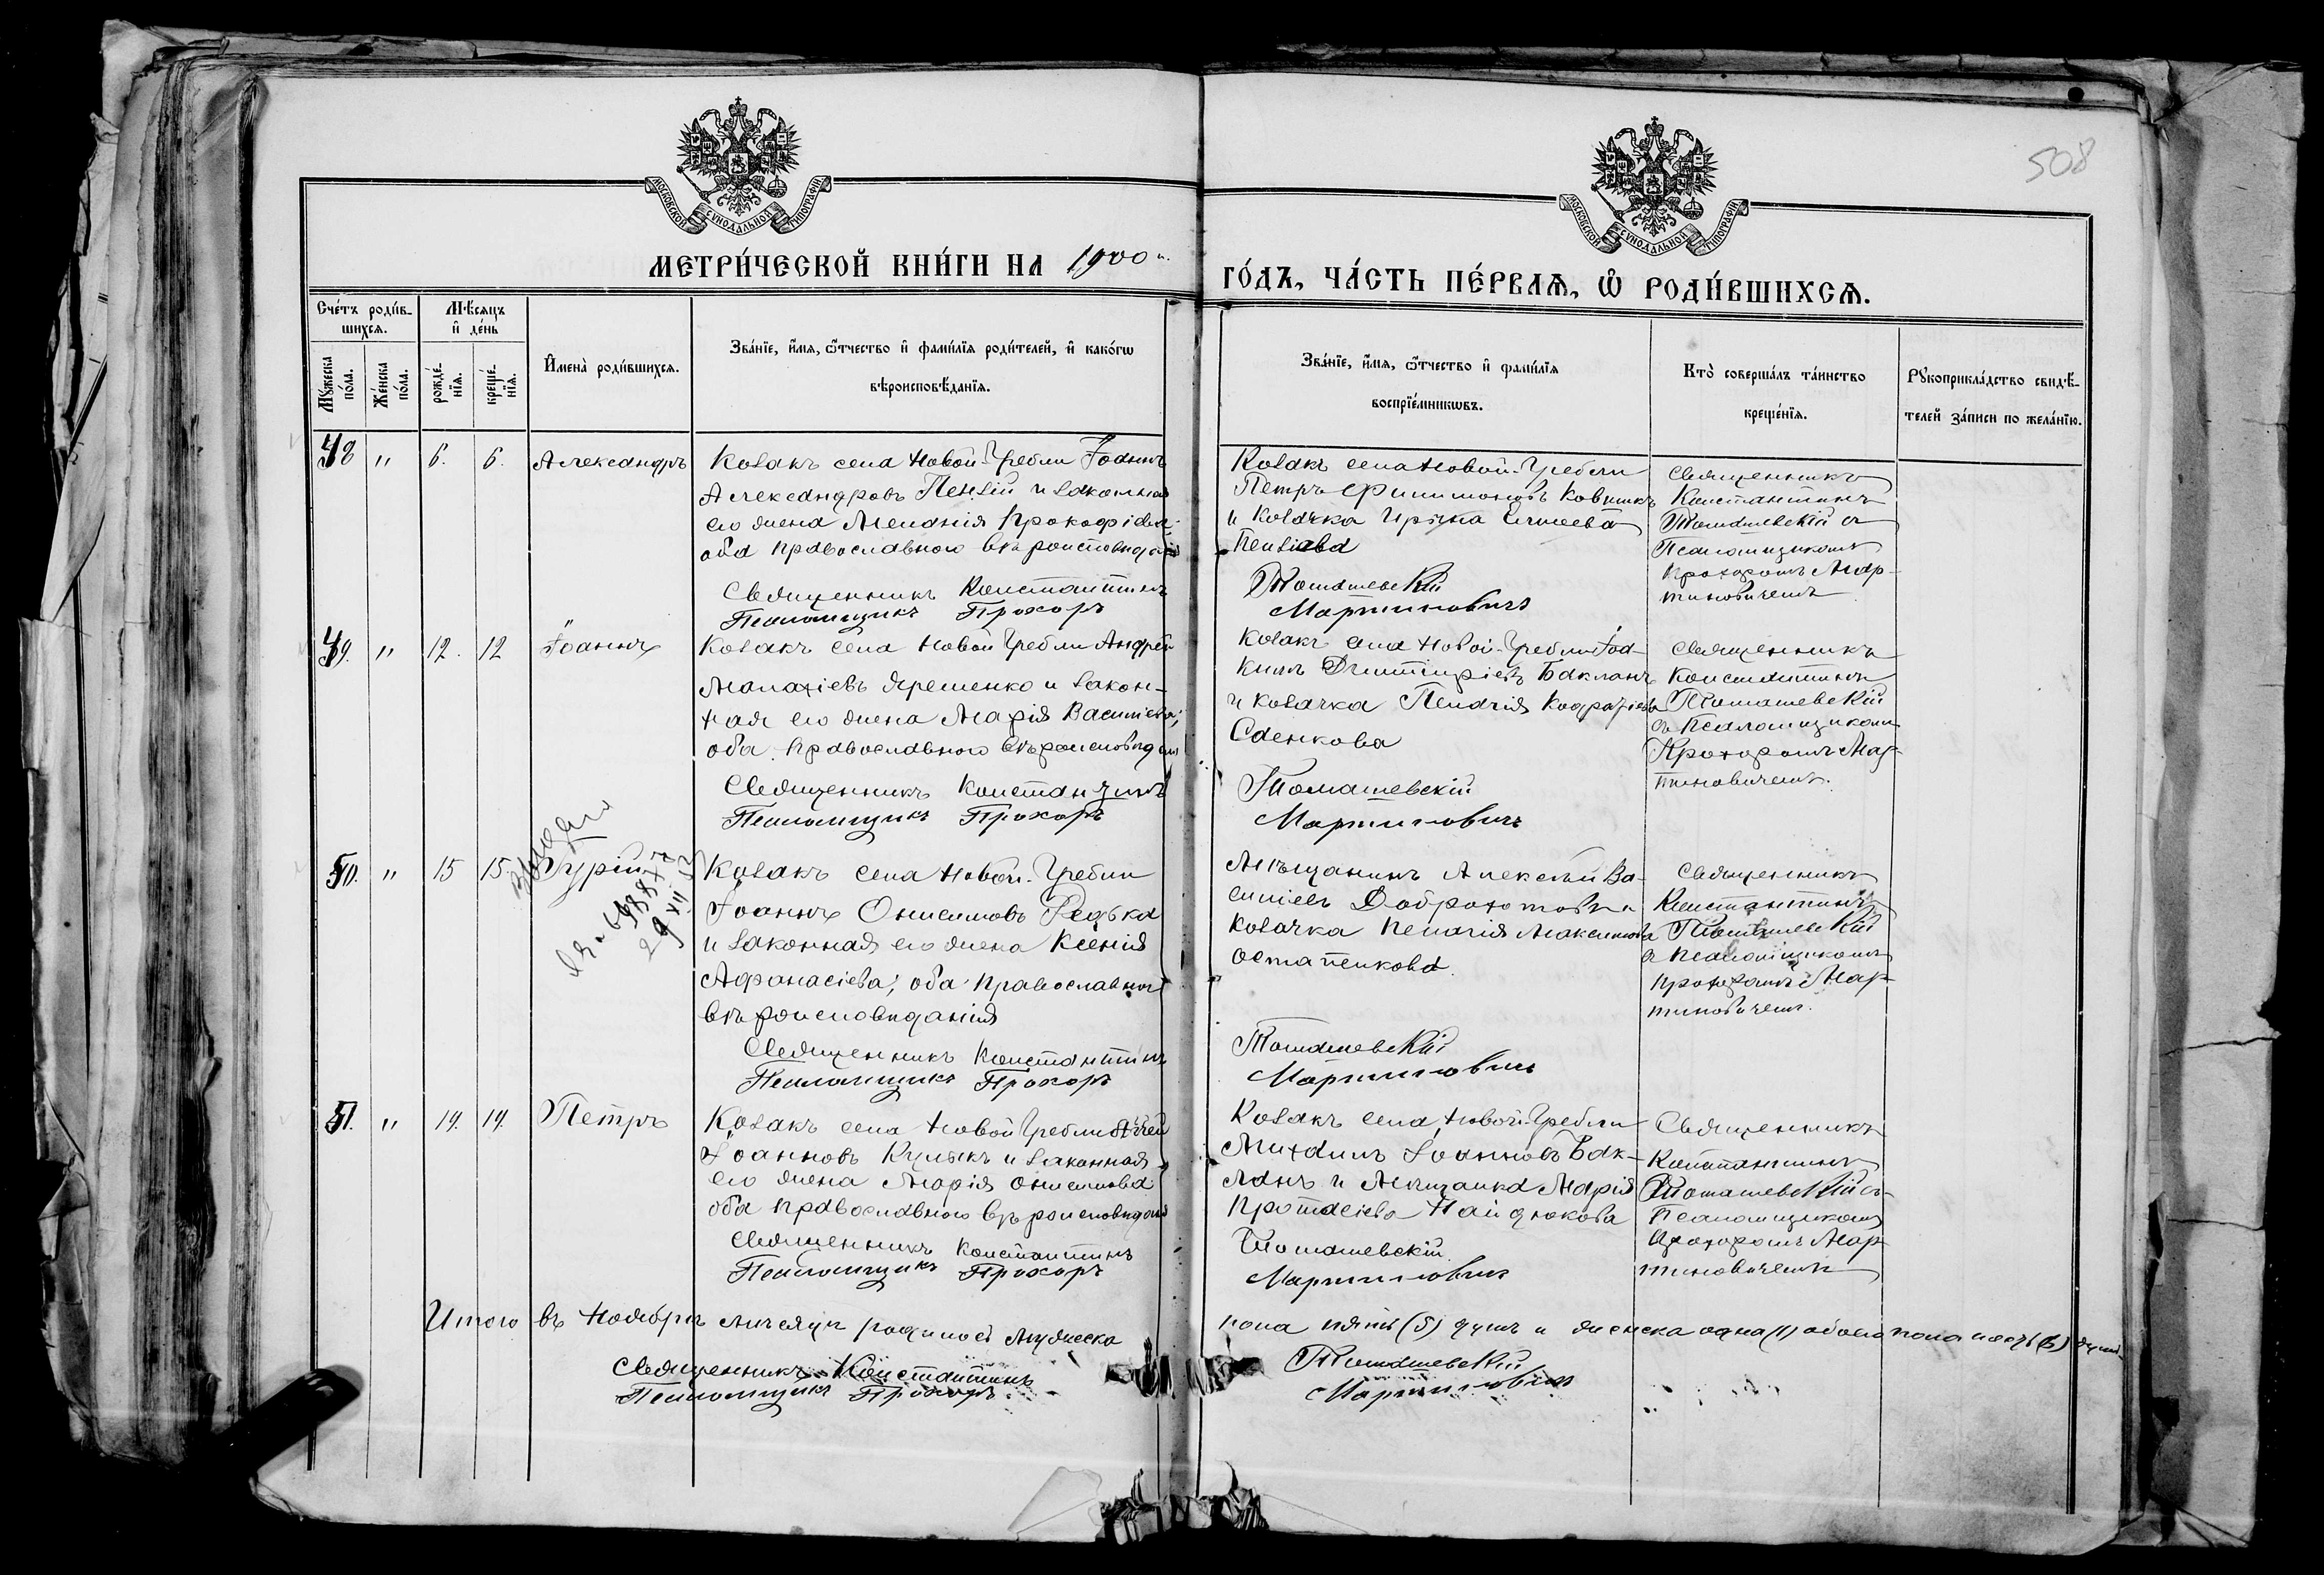 508
МОСКОВСКОЙ СѴНОДАЛЬНОЙ ТИПОГРАФІИ
МОСКОВСКОЙ СѴНОДАЛЬНОЙ ТИПОГРАФІИ
МЕТРИ́ЧЕСКОЙ КНИ́ГИ НА 1900
ГО́ДЪ, ЧА́СТЬ ПЕ́РВАѦ, Ѽ РОДИ́ВШИХСѦ.
Сче́тъ роди́в-
шихсѧ.
Мꙋ́жеска по́ла.
Же́нска по́ла.
Мѣ́сѧцъ
и҆ де́нь
рожде́-
нїѧ.
креще́-
нїѧ.
И҆мена̀ роди́вшихсѧ.
Зва́нїе, и҆́мѧ, ѻ҆́тчество и҆ фами́лїѧ роди́телей, и҆ како́гѡ
вѣроисповѣ́данїѧ.
Зва́нїе, и҆́мѧ, ѻ҆́тчество и҆ фами́лїѧ
воспрїе́мникѡвъ.
Кто̀ соверша́лъ та́инство
креще́нїѧ.
Рꙋкоприкла́дство свидѣ́-
телей за́писи по жела́нїю.
48 " 6. 6. Александръ
Козакъ села Новой-Гребли Іоаннъ
Александровъ Пензій и законная
его жена Меланія Прокофіева;
оба православнаго вѣроисповѣданія
Священникъ Константинъ
Псаломщикъ Прохоръ
Козакъ села Новой-Гребли
Петръ Филимоновъ
и козачка
Пензіева
Томашевскій
Мартиновичъ
Священникъ
Константинъ
Томашевскій съ
Псаломщикомъ
Прохоромъ Мар-
тиновичемъ
49. " 12. 12 Іоаннъ
Козакъ села Новой Гребли Андрей
Малахіевъ Яременко и закон-
ная его жена Марія Василіева;
оба православнаго вѣроисповѣданія
Священникъ Константинъ
Псаломщикъ Прохоръ
Козакъ села Новой-Гребли Іоа-
Димитріевъ Бакланъ
и козачка
Томашевскій
Мартиновичъ
Священникъ
Константинъ
Томашевскій
съ Псаломщикомъ
Прохоромъ Мар-
тиновичемъ.
50. " 15 15. Гурій
Козакъ села Новой-Гребли
Іоаннъ Онисимовъ Редька
и законная его жена Ксенія
Афанасіева; оба православнаго
вѣроисповѣданія
Священникъ Константинъ
Псаломщикъ Прохоръ
Мѣщанинъ Алексѣй Ва-
силіевъ Доброхотовъ и
козачка Пелагія Максимова
Остапенкова.
Томашевскій
Мартиновичъ
Священникъ
Константинъ
Томашевскій
съ Псаломщикомъ
Прохоромъ Мар-
тиновичемъ.
51. " 19. 19. Петръ
Козакъ села Новой Гребли
Іоанновъ Кулыкъ и законная
его жена Марія Онисимова
оба православнаго вѣроисповѣданія
Священникъ Константинъ
Псаломщикъ Прохоръ
Козакъ села Новой-Гребли
Михаилъ Іоанновъ Бак-
ланъ и мѣщанка Марія
Протасіева Найдюкова
Томашевскій
Мартиновичъ
Священникъ
Константинъ
Томашевскій съ
Псаломщикомъ
Прохоромъ Мар-
тиновичемъ
Итого въ Ноябрѣ мѣсяцѣ родилось мужеска
пола пять (5) душъ и женска одна (1) обоего пола шесть (6) душъ
Священникъ Константинъ
Псаломщикъ Прохоръ
Томашевскій
Мартиновичъ